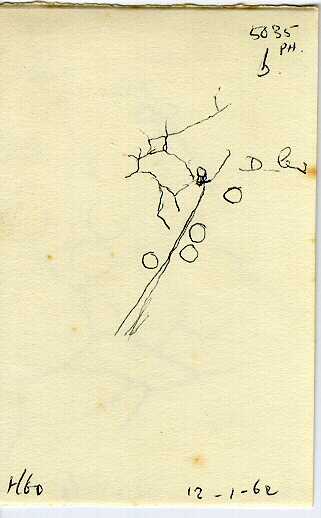 5035
PH.
b.
D
H60
12-1-62